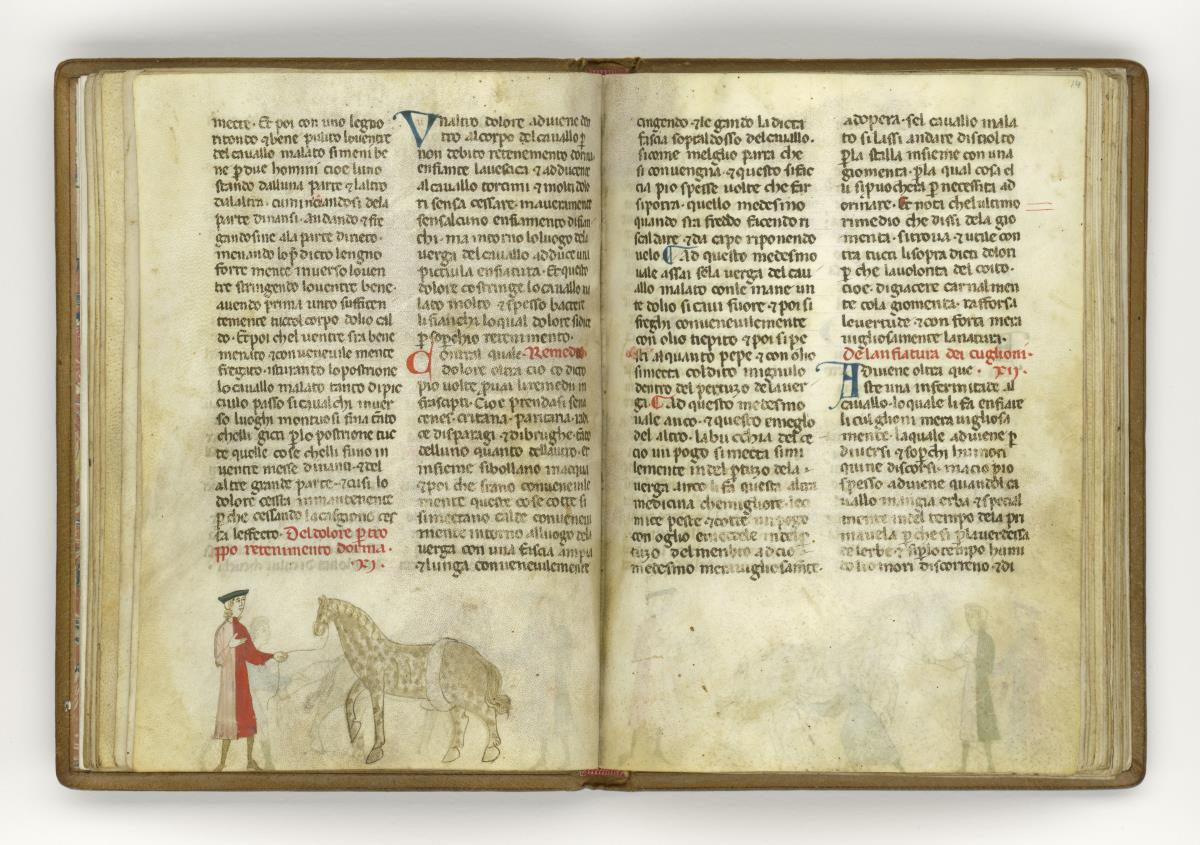 mette· Et poi con uno legno
ritondo & bene pulito lo ventre
del cavallo malato si meni be
ne p̄ due homini cioe luno
stando dalluna parte & laltro
dalaltra· cuminciandosi dela
parte dinansi· andando & fre
gandosine ala parte dirieto·
menando lo p̄dicto lengno
forte mente inverso lo ven
tre stringendo lo ventre bene·
avendo prima unto sufficen
temente tucto l corpo dolio cal
do· Et poi chel ventre sia bene
menato & convenevile mente
fregato· isturando lo postrione
lo cavallo malato tanto di pic
ciulo passo si cavalchi inver
so luoghi montuosi fina tanto
chelli gicti p̄ lo postrione tuc
te quelle cose chelli funo in
ventre messe dinanti· & del
altre grande parte· & cusi lo
dolore cessa inmantenente
p̄ che cessando la casgione ces
sa leffecto· Del dolore p̄ tro
ppo retenimento dorina·
XI·
Vnaltro dolore adviene den
tro al corpo del cavallo p̄
non debito retenimento dorina
enfiante la vescica· & adducente
al cavallo torcimi & molti dolo
ri sensa cessare· maiormente
sensa alcuno enfiamento di fian
chi· ma intorno lo luogo dela
verga del cavallo adduce una
picciula enfiatura· Et questo
dolore costringe lo cavallo ma
lato molto· & spesso bactere
li fianchi lo qual dolore si dice
p̄ sop̄chio retenimento·
Contra l quale· Remedio·
oltra cio co dicto
piu volte p̄ vai li remedii in
frascripti· Cioe prendasi sem
cenes· critana· paritaria· radi
ce disparagi· & di brughe·
delluno quanto dellautro· &
insieme si bollano in acqua
& poi che siano convenevile
mente queste cose cotte si
si mectano calde convenevile
mente intorno al luogo dela
verga con una fascia ampia
& lunga convenevilemente
14
cingendo· & legando la dicta
fascia sopra l dosso del cavallo·
sicome melglio parra che
si convengna· & questo si fac
cia piu spesse volte che far
si potra· quello medesmo
quando sra freddo facendo ri
scaldare· & da capo riponendo
velo· Cad questo medesmo
vale assai se la verga del cav
allo malato con le mane un
te dolio si cavi fuore· & poi si
freghi convenevilemente
con olio tiepito & poi si pe
sti alquanto pepe & con olio
si mecta col dito mignulo
dentro del pertuzo de la ver
ga· Cad questo medesmo
vale anco· & questo e meglo
del altro· la bucchia del ce
cio un pogo si mecta simi
lemente in del p̄tuzo dela
verga· anco li fa questa altra
medicina che migliore· le ci
mice peste· & cotte un pogo
con oglio e mectele in del p̄
tuzo del menbro ad cio
medesmo meravigliosamente·
adopera· sel cavallo mala
to si lassi andare disciolto
p̄ la stalla insieme con una
giomenta· p̄ la qual cosa el
li si puo cheta p̄ necessita ad
orinare· Et nota chel ultimo
rimedio che dissi dela gio
menta· si trova· & utile con
tra tucti li sopra dicti dolori
p̄ che la volonta del coito·
cioe· di giacere carnal men
te cola giomenta· rafforsa
le vertude· & conforta mera
vigliosamente la natura·
De lanfiatura dei cuglioni·
XII·
Adviene oltra que
ste una infermitade al
cavallo· lo quale li fa enfiare
li culglioni mera vigliosa
mente· la quale adviene p̄
diversi & sop̄chi humori
quine discorsi· ma cio piu
spesso adviene quando l ca
vallo mangia erba· & special
mente in del tempo dela pri
mavela p̄ che si p̄ la verdessa
de lerbe· & si p̄ lo tempo humi
do li omori discorreno· & di